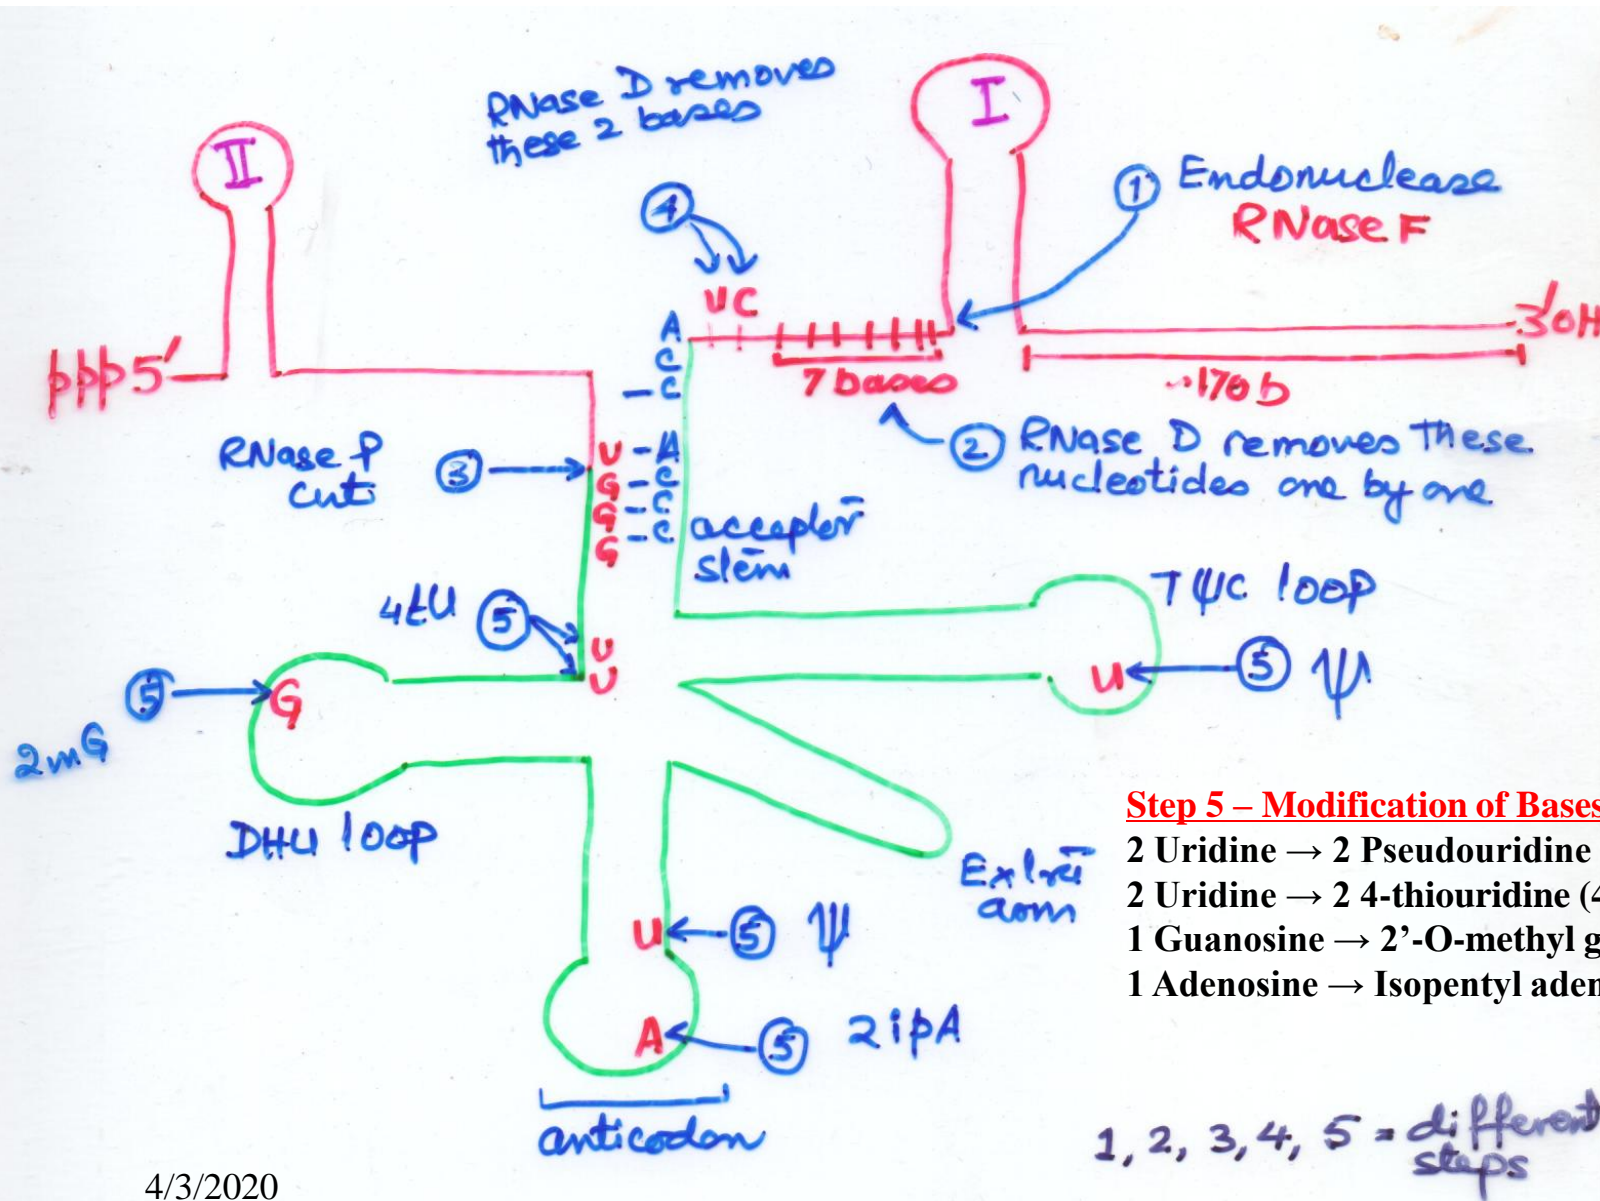 RNase D removes
these 2 bases
I
II
1 Endonuclease
RNase F
4
UC
A
C
- C
ppp5'
3'OH
7 bases
~170b
2 RNase D removes these
nucleotides one by one
RNase P
cuts
3
U - A
G - C
G - C
G - C
acceptor
stem
4tU 5
U
U
TψC loop
U 5 ψ
5 G
2mG
DHU loop
Extra
arm
Step 5 – Modification of Bases
2 Uridine → 2 Pseudouridine
2 Uridine → 2 4-thiouridine (4
1 Guanosine → 2’-O-methyl g
1 Adenosine → Isopentyl aden
U 5 ψ
A 5 2ipA
anticodon
1, 2, 3, 4, 5 = different
steps
4/3/2020